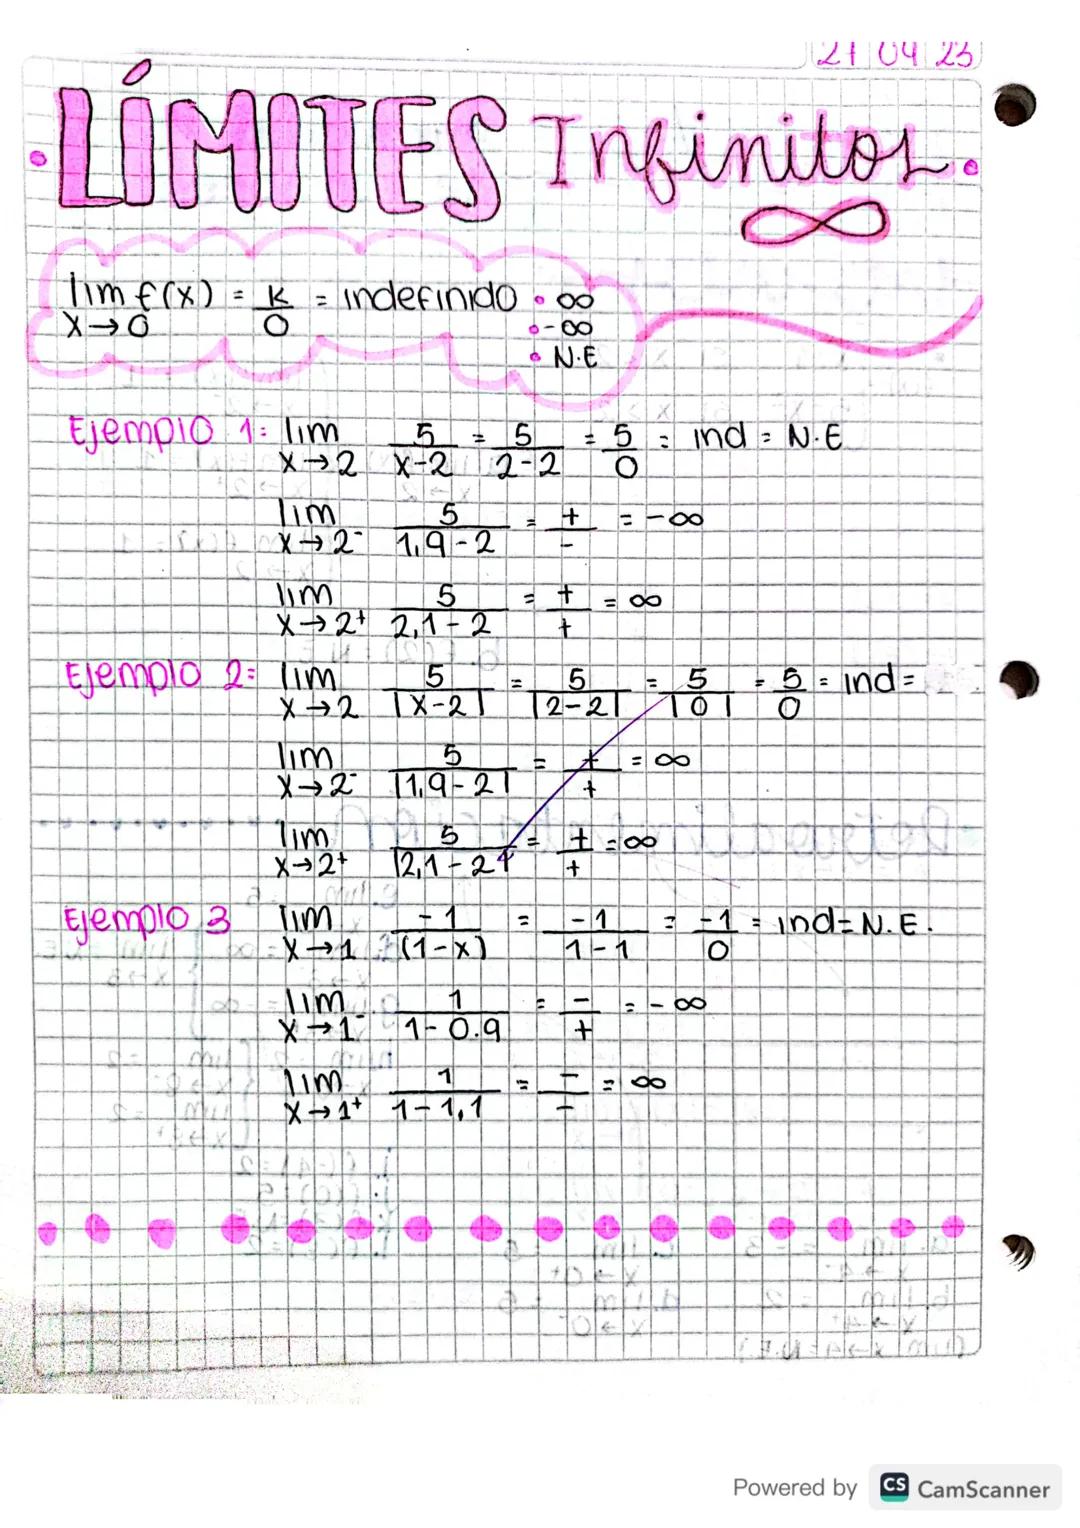 21 04 23
LÍMITES Infinitos
lim f(x) = K/0 = indefinido • ∞
x→0 • -∞
• N.E
Ejemplo 1: lim x→2 5/(x-2) = 5/(2-2) = 5/0 = ind = N.E
lim x→2⁻ 5/(1,9-2) = +/- = -∞
lim x→2⁺ 5/(2,1-2) = +/+ = ∞
Ejemplo 2: lim x→2 5/|x-2| = 5/|2-2| = 5/|0| = 5/0 = ind =
lim x→2⁻ 5/|1,9-2| = +/+ = ∞
lim x→2⁺ 5/|2,1-2| = +/+ = ∞
Ejemplo 3 lim x→1 -1/(1-x) = -1/(1-1) = -1/0 = ind = N.E.
lim x→1⁻ 1/(1-0.9) = -/+ = -∞
lim x→1⁺ 1/(1-1,1) = -/- = ∞
Powered by CS CamScanner